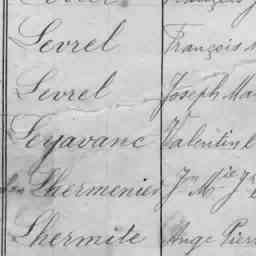 Levrel François
Levrel Joseph Ma
Leyavanc Valentin
Lhermenier Jn Mie Jn
Lhermite Ange Pier